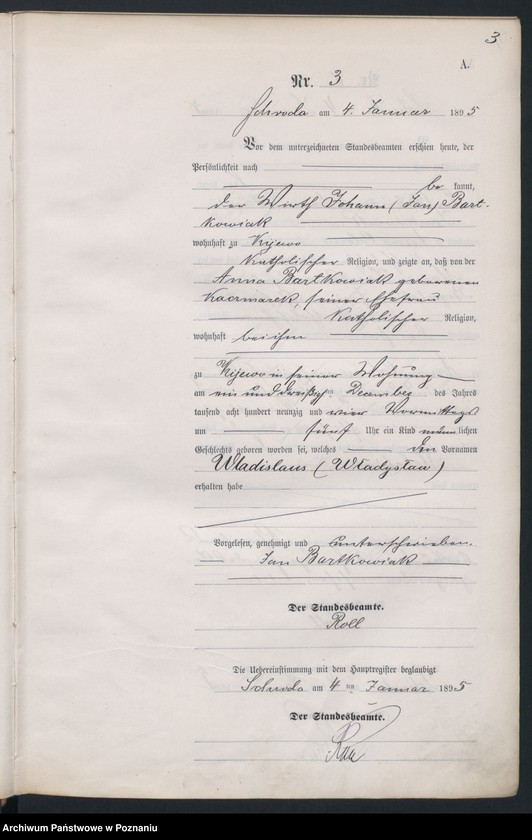 3
A.
Nr. 3
Schroda am 4. Januar 1895
Vor dem unterzeichneten Standesbeamten erschien heute, der
Persönlichkeit nach
be kannt,
der Wirth Johann (Jan) Bart-
kowiak
wohnhaft zu Kijewo
katholischer Religion, und zeigte an, daß von der
Anna Bartkowiak geborenen
Kaczmarek, seiner Ehefrau
katholischer Religion,
wohnhaft bei ihm
zu Kijewo in seiner Wohnung
am ein und dreißigten December des Jahres
tausend acht hundert neunzig und vier Vormittags
um fünf Uhr ein Kind männlichen
Geschlechts geboren worden sei, welches den Vornamen
Wladislaus (Władysław)
erhalten habe
Vorgelesen, genehmigt und unterschrieben.
Jan Bartkowiak
Der Standesbeamte.
Roll
Die Uebereinstimmung mit dem Hauptregister beglaubigt
Schroda am 4ten Januar 1895
Der Standesbeamte.
Archiwum Państwowe w Poznaniu